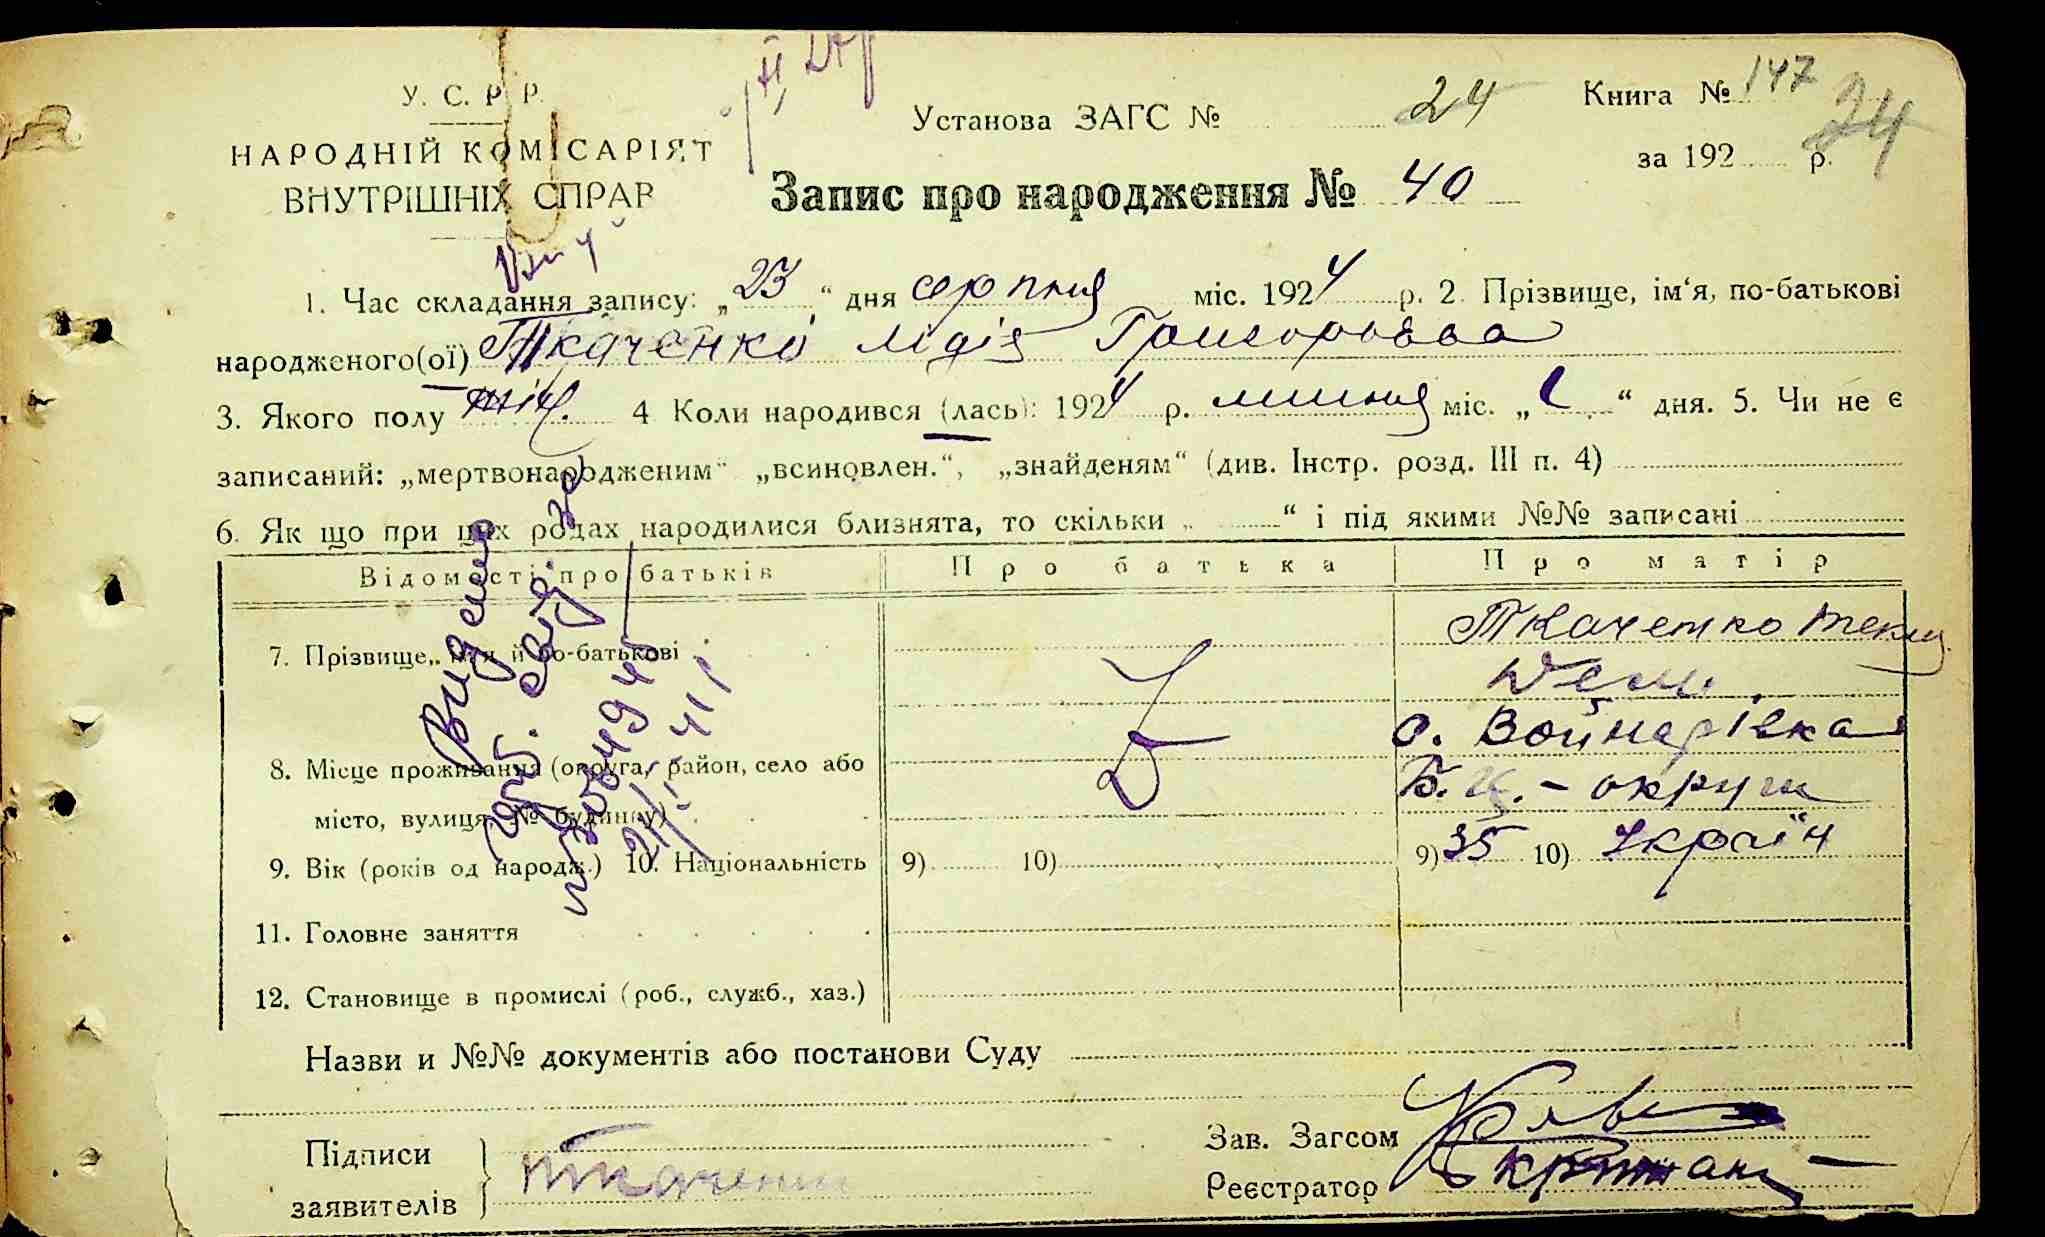 У. С. Р. Р.
НАРОДНІЙ КОМІСАРІЯТ
ВНУТРІШНІХ СПРАВ
Установа ЗАГС № 24
Книга № 147
24
за 192 р.
Запис про народження № 40
1. Час складання запису: „23“ дня серпня міс. 1924 р. 2. Прізвище, ім‘я, по-батькові
народженого(ої) Ткаченко Лідія Григоровна
3. Якого полу жін. 4 Коли народився (лась): 1924 р. липня міс. „1“ дня. 5. Чи не є
записаний: „мертвонародженим“ „всиновлен.“, „знайденям“ (див. Інстр. розд. III п. 4)
6. Як що при цих родах народилися близнята, то скільки „ “ і під якими №№ записані
Відомості про батьків Про батька Про матір
7. Прізвище, ім‘я й по-батькові
Ткаченко Текля
Дем.
8. Місце проживання (округа, район, село або
місто, вулиця, № будинку)
с. Войнарівка
Б. Ц. - округи
9. Вік (років од народж.) 10. Національність 9) 10) 9) 35 10) Україн
11. Головне заняття
12. Становище в промислі (роб., служб., хаз.)
Видано
повт. свід. за
21/І-41
Назви и №№ документів або постанови Суду
Підписи
заявителів
Ткаченко
Зав. Загсом
Реєстратор